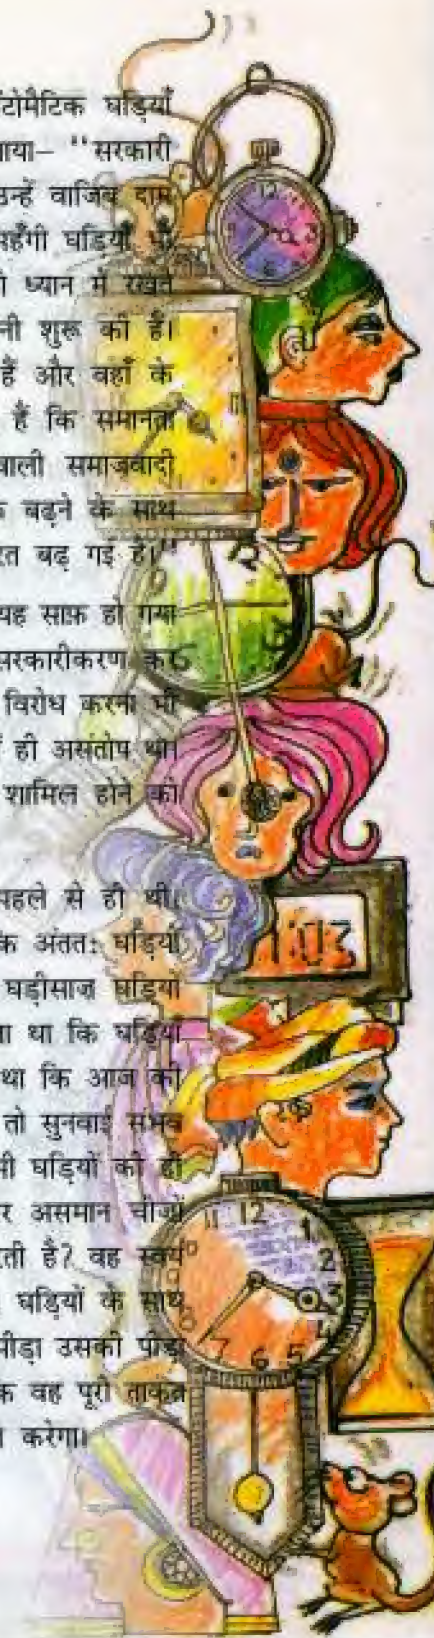 टोमैटिक घड़ियाँ
ाया– "सरकारी
उन्हें वाजिब दाम
महँगी घड़ियाँ भी
ो ध्यान में रखते
नी शुरू की हैं।
हैं और वहाँ के
हैं कि समानता
वाली समाजवादी
क बढ़ने के साथ
रत बढ़ गई है।"
यह साफ़ हो गया
सरकारीकरण का
विरोध करना भी
ें ही असंतोष था।
शामिल होने को
पहले से ही थी।
कि अंततः घड़ियाँ
घड़ीसाज़ घड़ियों
ा था कि घड़ियाँ
था कि आज की
तो सुनवाई संभव
भी घड़ियों को ही
र असमान चीज़ों
ती है? वह स्वयं
घड़ियों के साथ
पीड़ा उसकी पीड़ा
क वह पूरी ताकत
ा करेगा।
12
3
6
9
12
5
6
1:03
11 12 1
2
3
4
5
6
7
8
9
10